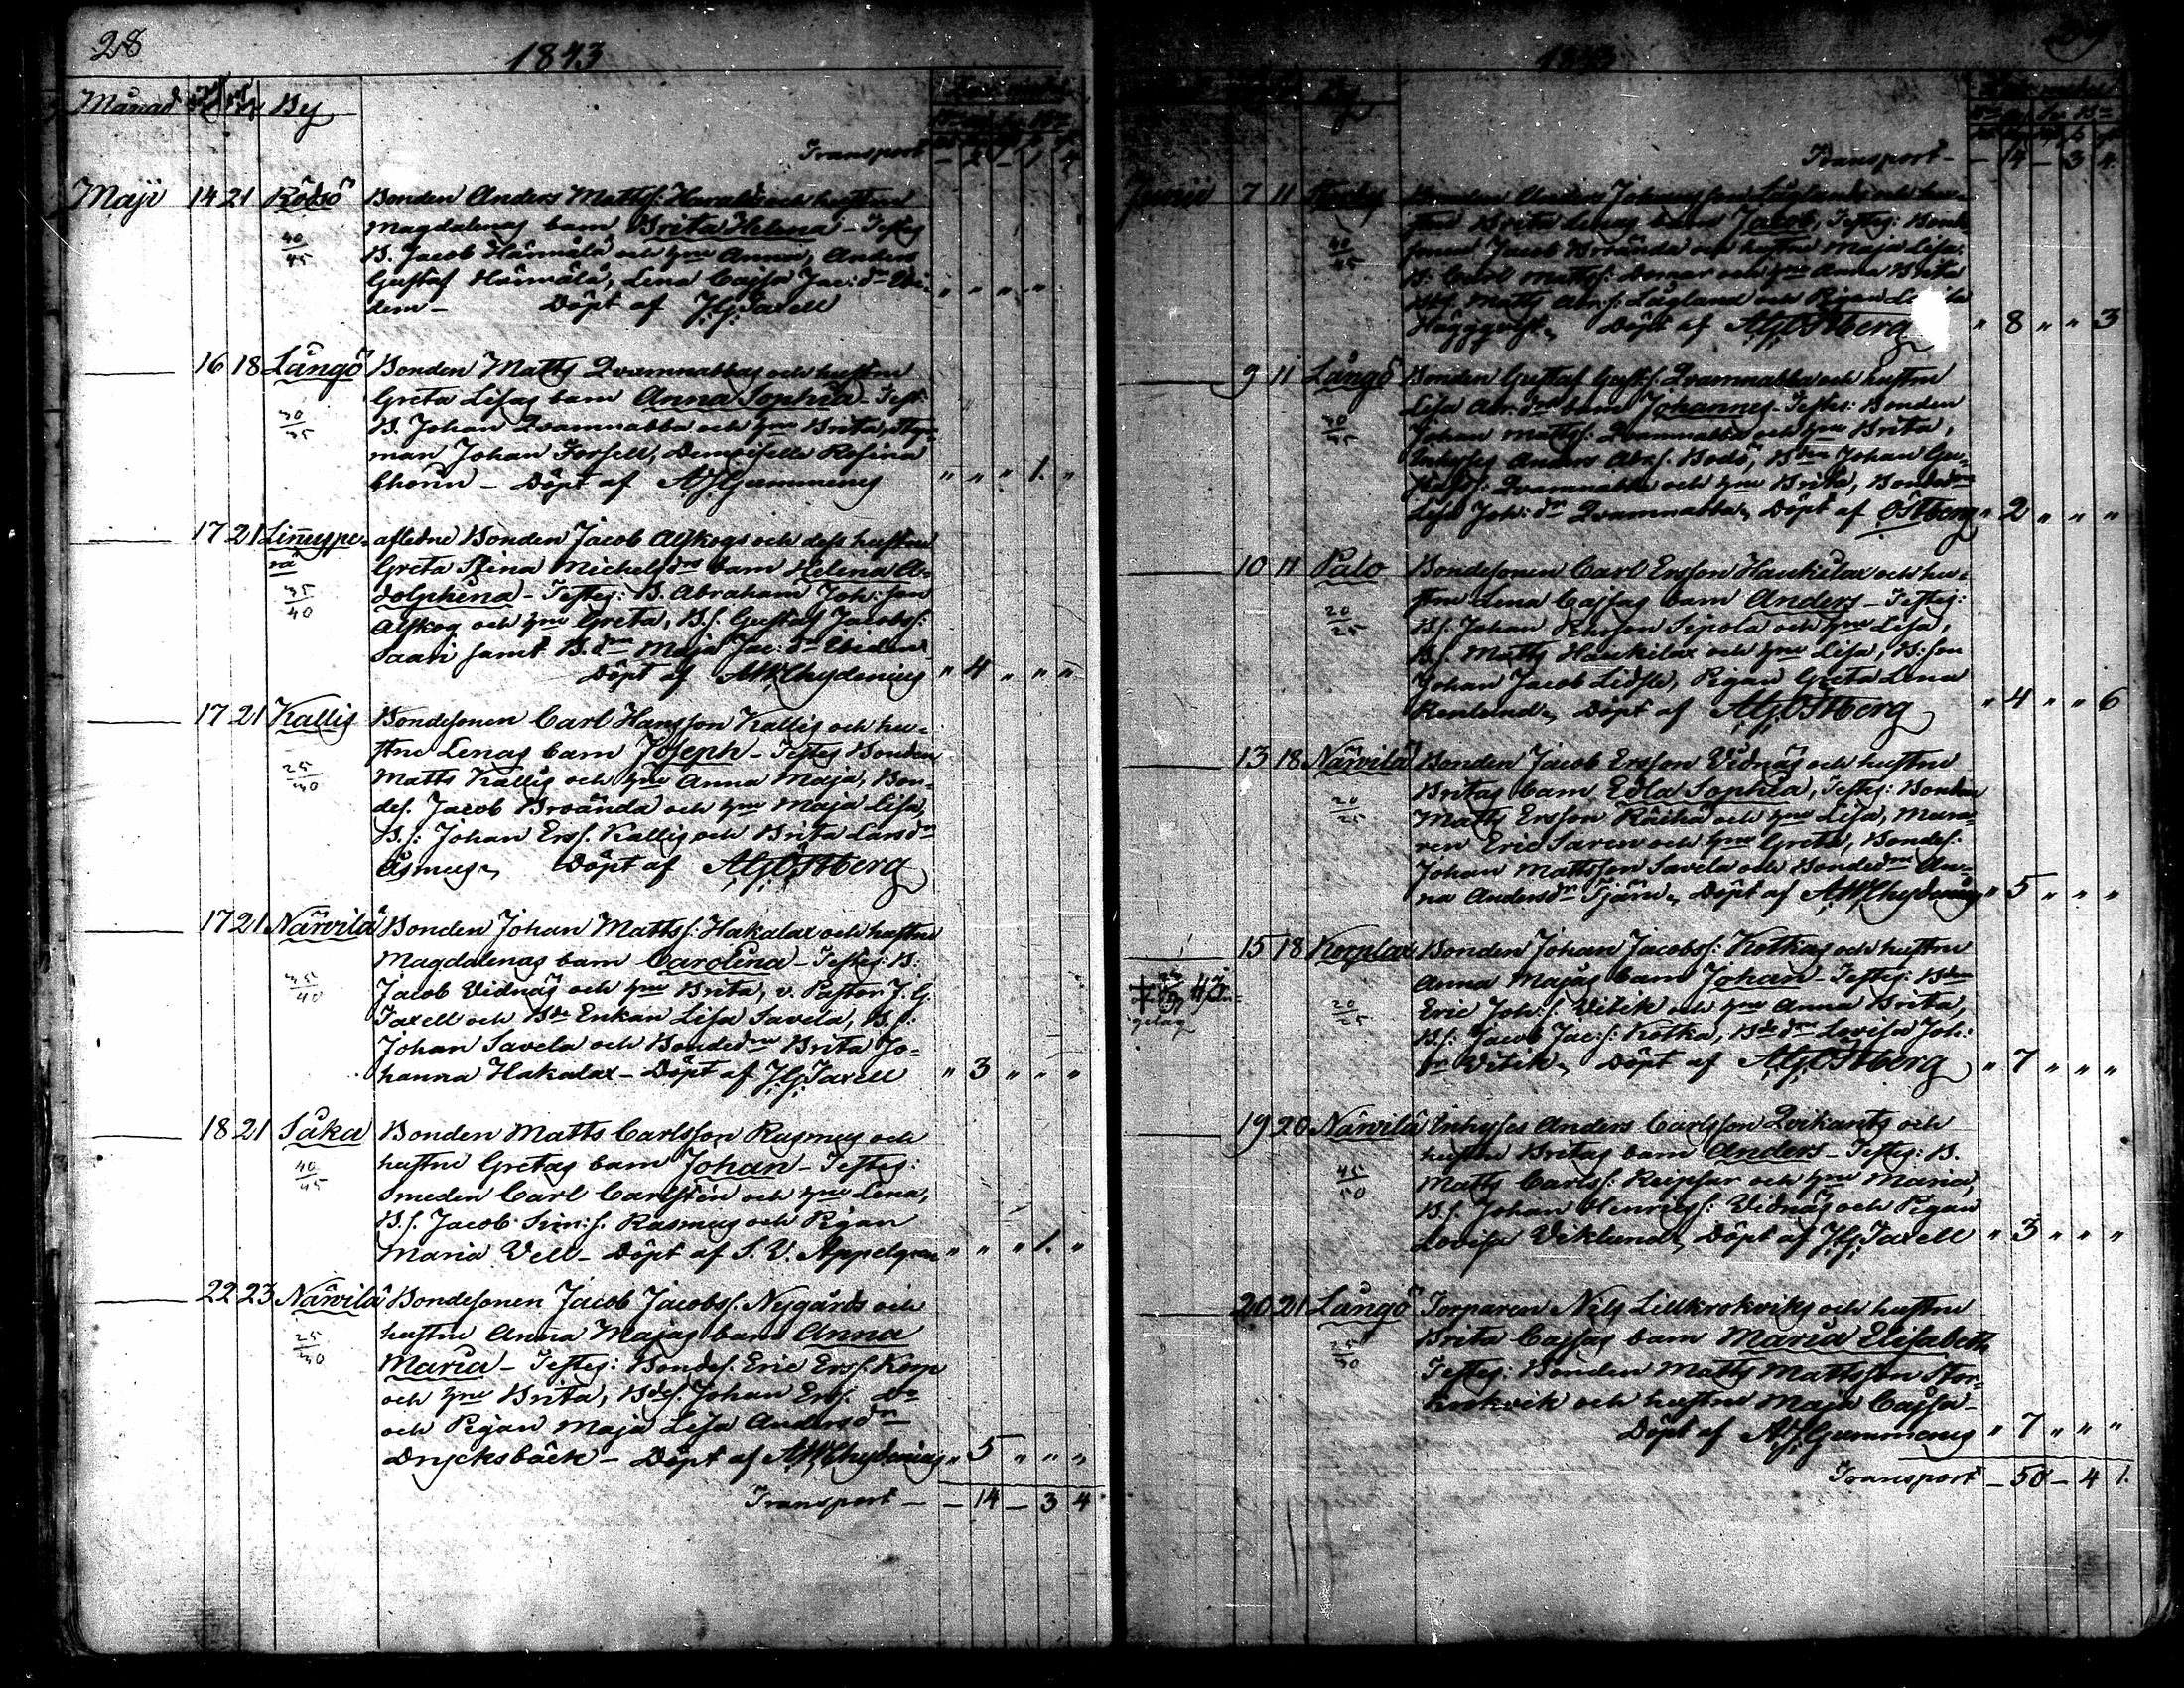 28
1843
Månad By
Transport - 2 - 1. 4
Maji 14 21 Rödsö Bonden Anders Matts: Haralds och hustrus
Magdalenas barn Brita Helena - Testes
40/45 B. Jacob Härmälä och h:nu Anna, Anders
Gustaf Härmälä, Lena Cajsa Jac: d:r Ibi-
dem - Döpt af J.G. Taxell " " " "
16 18 Långö Bonden Matts Qvarnnabbas och hustrus
Greta Lisas barn Anna Sophia - Test:
30/35 B. Johan Qvarnnabba och h:nu Brita,
man Johan Forsell, Demoiselle Rosina
Chorin - Döpt af A.J. Gummerus " " " 1. "
17 21 Linnype- afledne Bonden Jacob Alskogs och dess hustrus
rä Greta Stina Michelsd:rs barn Helena A-
35/40 dolphina - Testes: B. Abraham Joh: son
Alskog och h:nu Greta, B.s. Gustaf Jacobss:
Saari samt B.d:r Maja Jac: d:r Ibidem
Döpt af A.W. Chydenius " 4 " " "
17 21 Kallis Bondesonen Carl Hansson Kallis och hu-
strus Lenas barn Joseph - Testes Bonden
25/30 Matts Kallis och h:nu Anna Maja, Bon-
des. Jacob Broända och h:nu Maja Lisa,
B.s: Johan Erss. Kallis och Brita Larsd:r
Åsmus, Döpt af A.G. Östberg
17 21 Närvilä Bonden Johan Mattss: Hakalax och hustrus
Magdalenas barn Carolina - Testes: B.
35/40 Jacob Vidnäs och h:nu Brita, v. Pastor J.G.
Taxell och B:de Enkan Lisa Savela, B.s:
Johan Savela och Bonded:r Brita Jo-
hanna Hakalax - Döpt af J.G. Taxell " 3 " " "
18 21 Såka Bonden Matts Carlsson Rasmus och
hustrus Gretas barn Johan - Testes:
40/45 Smeden Carl Carlsten och h:nu Lena,
B.s. Jacob Sim: s. Rasmus och Pigan
Maria Vell - Döpt af S.V. Appelgren " " " 1. "
22 23 Närvilä Bondesonen Jacob Jacobss. Nygårds och
hustrus Anna Majas barn Anna
25/30 Maria - Testes: Bondes. Eric Erss. Korp
och h:nu Brita, Bdes. Johan Erss. D:o
och Pigan Maja Lisa Andersd:r
Drycksbäck - Döpt af A.W. Chydenius " 5 " " "
Transport - - 14 - 3 4
29
1843
By
Transport - - 14 - 3 4
Junii 7 11 Bonden Anders Johansson Låglands och hu-
strus Brita Lenas barn Jacob, Testes: Bonde-
40/45 sonen Jacob Broända och hustru Maja Lisa,
B. Carl Mattss: Domar och h:nu Anna Brita
Matts Abr: s: Lågland och Pigan
Häggqvist, Döpt af A.G. Östberg " 8 " " 3
9 11 Långö Bonden Gustaf Gust:s. Qvarnnabba och hustrus
Lisa And: d:rs barn Johannes - Testes: Bonden
30/35 Johan Mattss: Qvarnnabba och h:nu Brita,
Inhyses Anders Abr.s. Bodö, B:den Johan Gu-
stafss: Qvarnnabba och h:nu Brita, Bonded:r
Lisa Joh: d:r Qvarnnabba, Döpt af Östberg " 2 " " "
10 11 Palo Bondesonen Carl Ersson Haukilax och hu-
strus Lena Cajsas barn Anders - Testes:
20/25 B.s. Johan Ersson Sipola och h:nu Lisa,
B.s. Matts Haukilax och h:nu Lisa, B: son
Johan Jacob Lidsle, Pigan Greta Lena
Renlund, Döpt af A.G. Östberg " 4 " " 6
13 18 Närvilä Bonden Jacob Ersson Vidnäs och hustrus
Britas barn Edla Sophia, Testes: Bonden
20/25 Matts Ersson Räihä och h:nu Lisa, Mura-
ren Eric Saren och h:nu Greta, Bondes:
Johan Mattsson Savela och Bonded:r An-
na Andersd:r Tjäru, Döpt af A.W. Chydenius " 5 " " "
15 18 Korplax Bonden Johan Jacobss: Kotkas och hustrus
Anna Majas barn Johan - Testes: B:den
20/25 Eric Joh: s. Vitick och h:nu Anna Brita,
B.s: Jacob Jac: s: Kotka, B:de d:r Lovisa Joh:
d:r Vitik, Döpt af A.G. Östberg " 7 " " "
19 20 Närvilä Inhyses Anders Carlsson Qvikants och
hustrus Britas barn Anders - Testes: B.
45/50 Matts Carlss: Reipsar och h:nu Maria,
B.s. Johan Henrikss: Vidnäs och Pigan
Lovisa Viklund, Döpt af J.G. Taxell " 3 " " "
20 21 Långö Torparen Nils Lillkrokviks och hustrus
Brita Cajsas barn Maria Elisabeth
25/30 Testes: Bonden Matts Mattsson Stor-
krokvik och hustru Maja Cajsa -
Döpt af A.J. Gummerus " 7 " " "
Transport - 50 - 4 1.